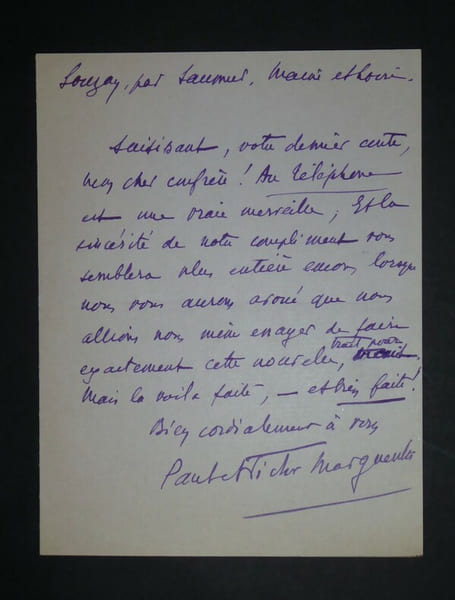 Souzay, par Saumur, Maine et Loire.
Saisissant, votre dernier conte,
mon cher confrère ! Au Téléphone
est une vraie merveille ; Et la
sincérité de notre compliment vous
semblera plus entière encore lorsque
nous vous aurons avoué que nous
allions nous même essayer de faire
exactement cette nouvelle, trait pour
Mais la voilà faite, — et bien faite !
Bien cordialement à vous
Paul et Victor Margueritte